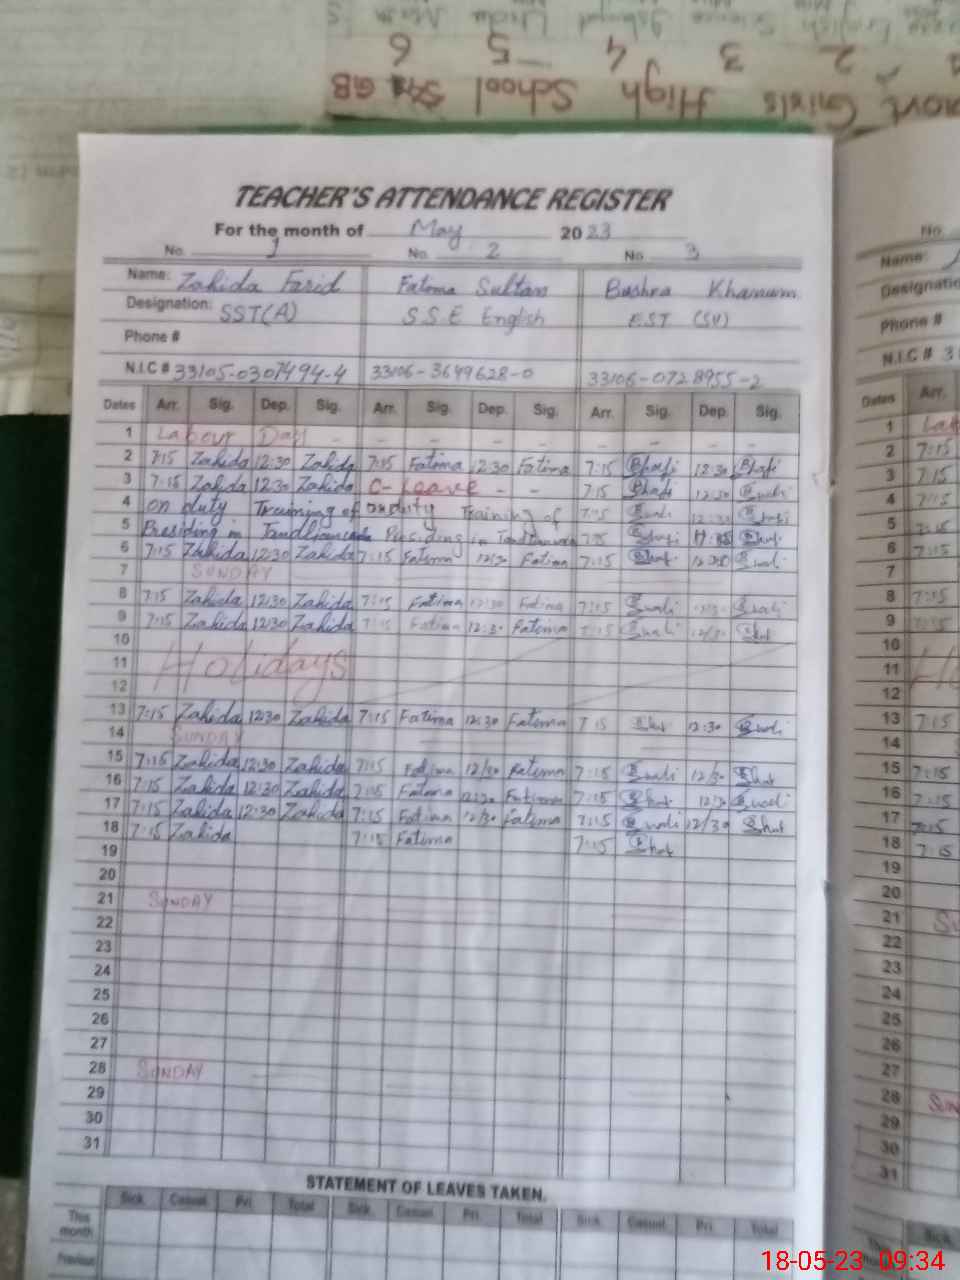 Govt Girls High School GB
2 3 4 5 6
TEACHER'S ATTENDANCE REGISTER
For the month of May 2023
No. 1 No. 2 No. 3
Name: Zahida Farid Fatima Sultan Bushra Khanum
Designation: SST(A) S.S.E English EST (SV)
Phone #
N.I.C # 33105-0307494-4 33106-3649628-0 33106-0728955-2
Dates Arr. Sig. Dep. Sig. Arr. Sig. Dep. Sig. Arr. Sig. Dep. Sig.
1 Labour Day - - - - - - - - -
2 7:15 Zahida 12:30 Zahida 7:15 Fatima 12:30 Fatima 7:15 12:30
3 7:15 Zahida 12:30 Zahida C-Leave - - 7:15 12:30
4 on duty Training of onduty Training of 7:15 12:30
5 Presiding in Tandlianwala Presiding in Tandlianwala 7:15
6 7:15 Zahida 12:30 Zahida 7:15 Fatima 12:30 Fatima 7:15 12:30
7 SUNDAY
8 7:15 Zahida 12:30 Zahida 7:15 Fatima 12:30 Fatima 7:15 12:30
9 7:15 Zahida 12:30 Zahida 7:15 Fatima 12:30 Fatima 7:15 12/30
10
11 Holidays
12
13 7:15 Zahida 12:30 Zahida 7:15 Fatima 12:30 Fatima 7:15 12:30
14 SUNDAY
15 7:15 Zahida 12:30 Zahida 7:15 Fatima 12/30 Fatima 7:15 12/30
16 7:15 Zahida 12:30 Zahida 7:15 Fatima 12:30 Fatima 7:15 12/30
17 7:15 Zahida 12:30 Zahida 7:15 Fatima 12/30 Fatima 7:15 12/30
18 7:15 Zahida 7:15 Fatima 7:15
19
20
21 SUNDAY
22
23
24
25
26
27
28 SUNDAY
29
30
31
STATEMENT OF LEAVES TAKEN.
Sick. Casual. Pri. Total Sick. Casual. Pri. Total Sick. Casual. Pri. Total
This month
Previous
No.
Name:
Designation
Phone #
N.I.C # 3
Dates Arr.
1
2 7:15
3 7:15
4 7:15
5 7:15
6 7:15
7
8 7:15
9 7:15
10
11
12
13 7:15
14
15 7:15
16 7:15
17 7:15
18 7:15
19
20
21
22
23
24
25
26
27
28
29
30
31
Sick.
18-05-23 09:34